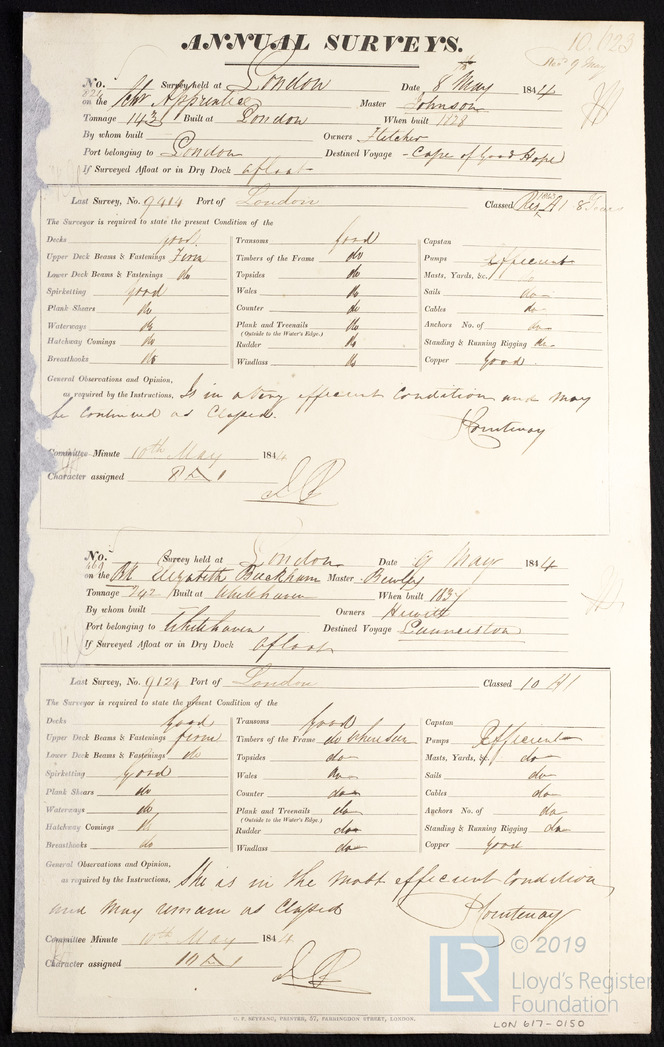 ANNUAL SURVEYS.
10.
9 May
No. 824 Survey held at London Date 8 May 1844
on the Schr Apprentice Master Johnson
Tonnage 143 Built at London When built
By whom built Owners Fletcher
Port belonging to London Destined Voyage Cape of Good Hope
If Surveyed Afloat or in Dry Dock afloat
Last Survey, No. 9414 Port of London Classed A1 8 Years
The Surveyor is required to state the present Condition of the
Decks good Transoms good Capstan
Upper Deck Beams & Fastenings Firm Timbers of the Frame do Pumps Efficient
Lower Deck Beams & Fastenings do Topsides do Masts, Yards, &c.
Spirketting good Wales do Sails do
Plank Shears do Counter do Cables do
Waterways do Plank and Treenails do Anchors No. of do
(Outside to the Water's Edge.)
Hatchway Comings do Rudder do Standing & Running Rigging do
Breasthooks do Windlass do Copper Good
General Observations and Opinion,
as required by the Instructions, Is in a very efficient condition and may
be continued as Classed.
P Courtenay
Committee Minute 10th May 1844
Character assigned
No. 469 Survey held at London Date 9 May 1844
on the Bk Elizabeth Buckham Master Bewley
Tonnage 242 Built at Whitehaven When built 1837
By whom built Owners Hewitt
Port belonging to Whitehaven Destined Voyage Launceston
If Surveyed Afloat or in Dry Dock afloat
Last Survey, No. 9124 Port of London Classed 10 A1
The Surveyor is required to state the present Condition of the
Decks good Transoms good Capstan
Upper Deck Beams & Fastenings firm Timbers of the Frame do where seen Pumps Efficient
Lower Deck Beams & Fastenings do Topsides do Masts, Yards, &c. do
Spirketting Good Wales do Sails do
Plank Shears do Counter do Cables do
Waterways do Plank and Treenails do Anchors No. of do
(Outside to the Water's Edge.)
Hatchway Comings do Rudder do Standing & Running Rigging do
Breasthooks do Windlass do Copper good
General Observations and Opinion,
as required by the Instructions, She is in the most efficient Condition
and may remain as Classed
P Courtenay
Committee Minute 10th May 1844
Character assigned 10 A 1
© 2019
LR Lloyd's Register
Foundation
C. F. SEYFANG, PRINTER, 57, FARRINGDON STREET, LONDON.
LON 617-0150